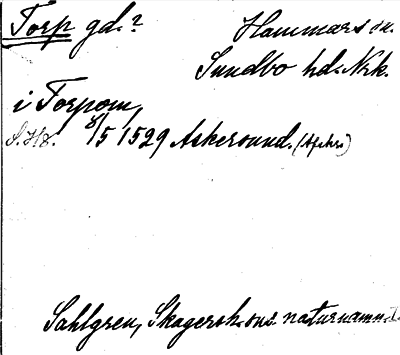 Torp gd.? Hammars sn.
Sundbo hd. Nrk.
i Torpom,
S. H8. 8/5 1529 Askersund. (Afskr)
Sahlgren, Skagersh. ons naturnamn I.